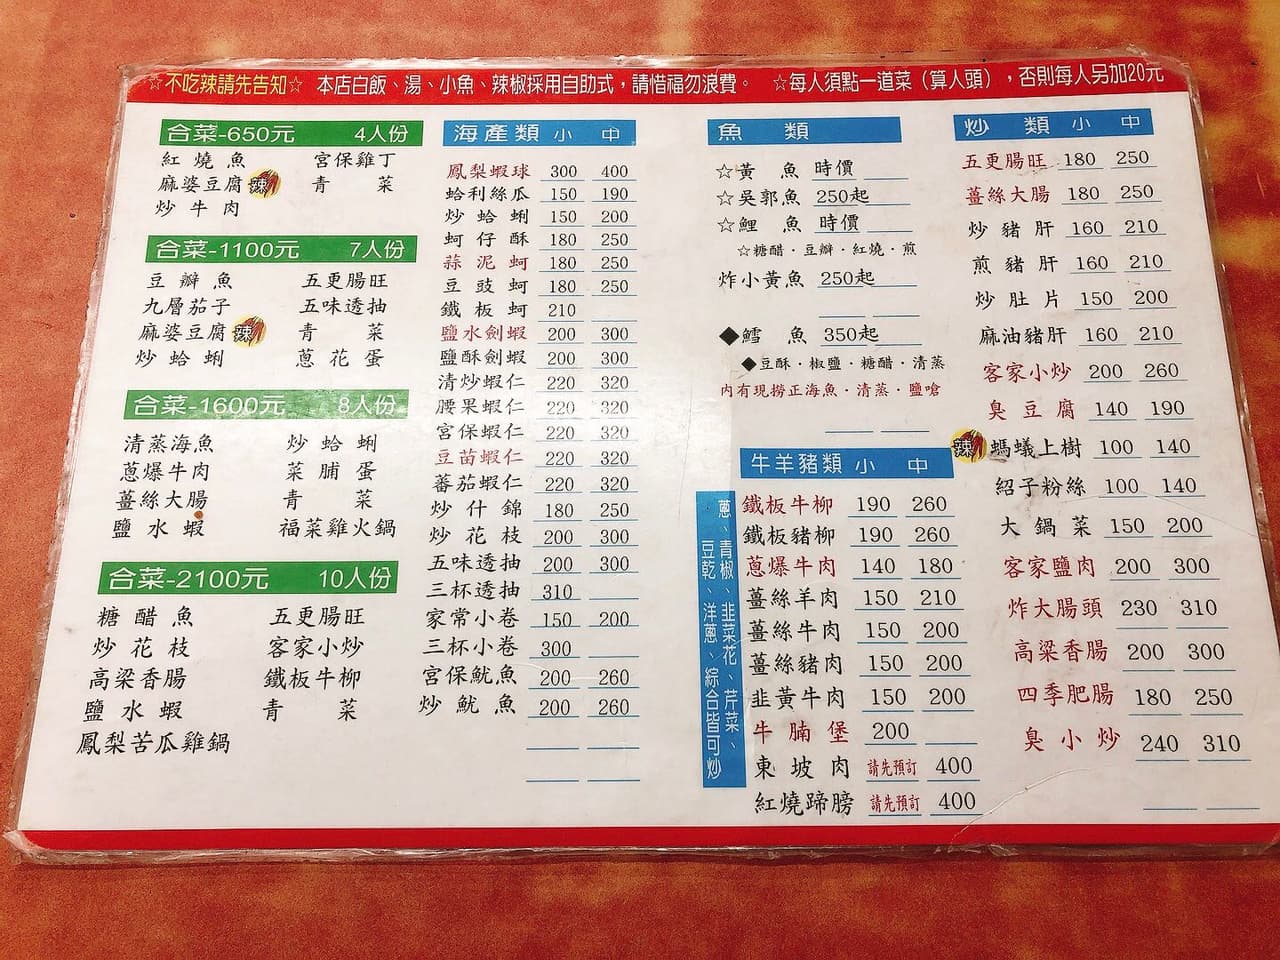 ☆不吃辣請先告知☆ 本店白飯、湯、小魚、辣椒採用自助式，請惜福勿浪費。 ☆每人須點一道菜（算人頭），否則每人另加20元
合菜-650元 4人份
紅燒魚 宮保雞丁
麻婆豆腐 辣 青菜
炒牛肉
合菜-1100元 7人份
豆瓣魚 五更腸旺
九層茄子 五味透抽
麻婆豆腐 辣 青菜
炒蛤蜊 蔥花蛋
合菜-1600元 8人份
清蒸海魚 炒蛤蜊
蔥爆牛肉 菜脯蛋
薑絲大腸 青菜
鹽水蝦 福菜雞火鍋
合菜-2100元 10人份
糖醋魚 五更腸旺
炒花枝 客家小炒
高粱香腸 鐵板牛柳
鹽水蝦 青菜
鳳梨苦瓜雞鍋
海產類 小 中
鳳梨蝦球 300 400
蛤利絲瓜 150 190
炒蛤蜊 150 200
蚵仔酥 180 250
蒜泥蚵 180 250
豆豉蚵 180 250
鐵板蚵 210
鹽水劍蝦 200 300
鹽酥劍蝦 200 300
清炒蝦仁 220 320
腰果蝦仁 220 320
宮保蝦仁 220 320
豆苗蝦仁 220 320
蕃茄蝦仁 220 320
炒什錦 180 250
炒花枝 200 300
五味透抽 200 300
三杯透抽 310
家常小卷 150 200
三杯小卷 300
宮保魷魚 200 260
炒魷魚 200 260
魚類
☆黃魚 時價
☆吳郭魚 250起
☆鯉魚 時價
☆糖醋．豆瓣．紅燒．煎
炸小黃魚 250起
◆鱈魚 350起
◆豆酥．椒鹽．糖醋．清蒸
內有現撈正海魚．清蒸．鹽嗆
牛羊豬類 小 中
蔥、青椒、韭菜花、芹菜、
豆乾、洋蔥、綜合皆可炒
鐵板牛柳 190 260
鐵板豬柳 190 260
蔥爆牛肉 140 180
薑絲羊肉 150 210
薑絲牛肉 150 200
薑絲豬肉 150 200
韭黃牛肉 150 200
牛腩堡 200
東坡肉 請先預訂 400
紅燒蹄膀 請先預訂 400
炒類 小 中
五更腸旺 180 250
薑絲大腸 180 250
炒豬肝 160 210
煎豬肝 160 210
炒肚片 150 200
麻油豬肝 160 210
客家小炒 200 260
臭豆腐 140 190
辣 螞蟻上樹 100 140
紹子粉絲 100 140
大鍋菜 150 200
客家鹽肉 200 300
炸大腸頭 230 310
高粱香腸 200 300
四季肥腸 180 250
臭小炒 240 310